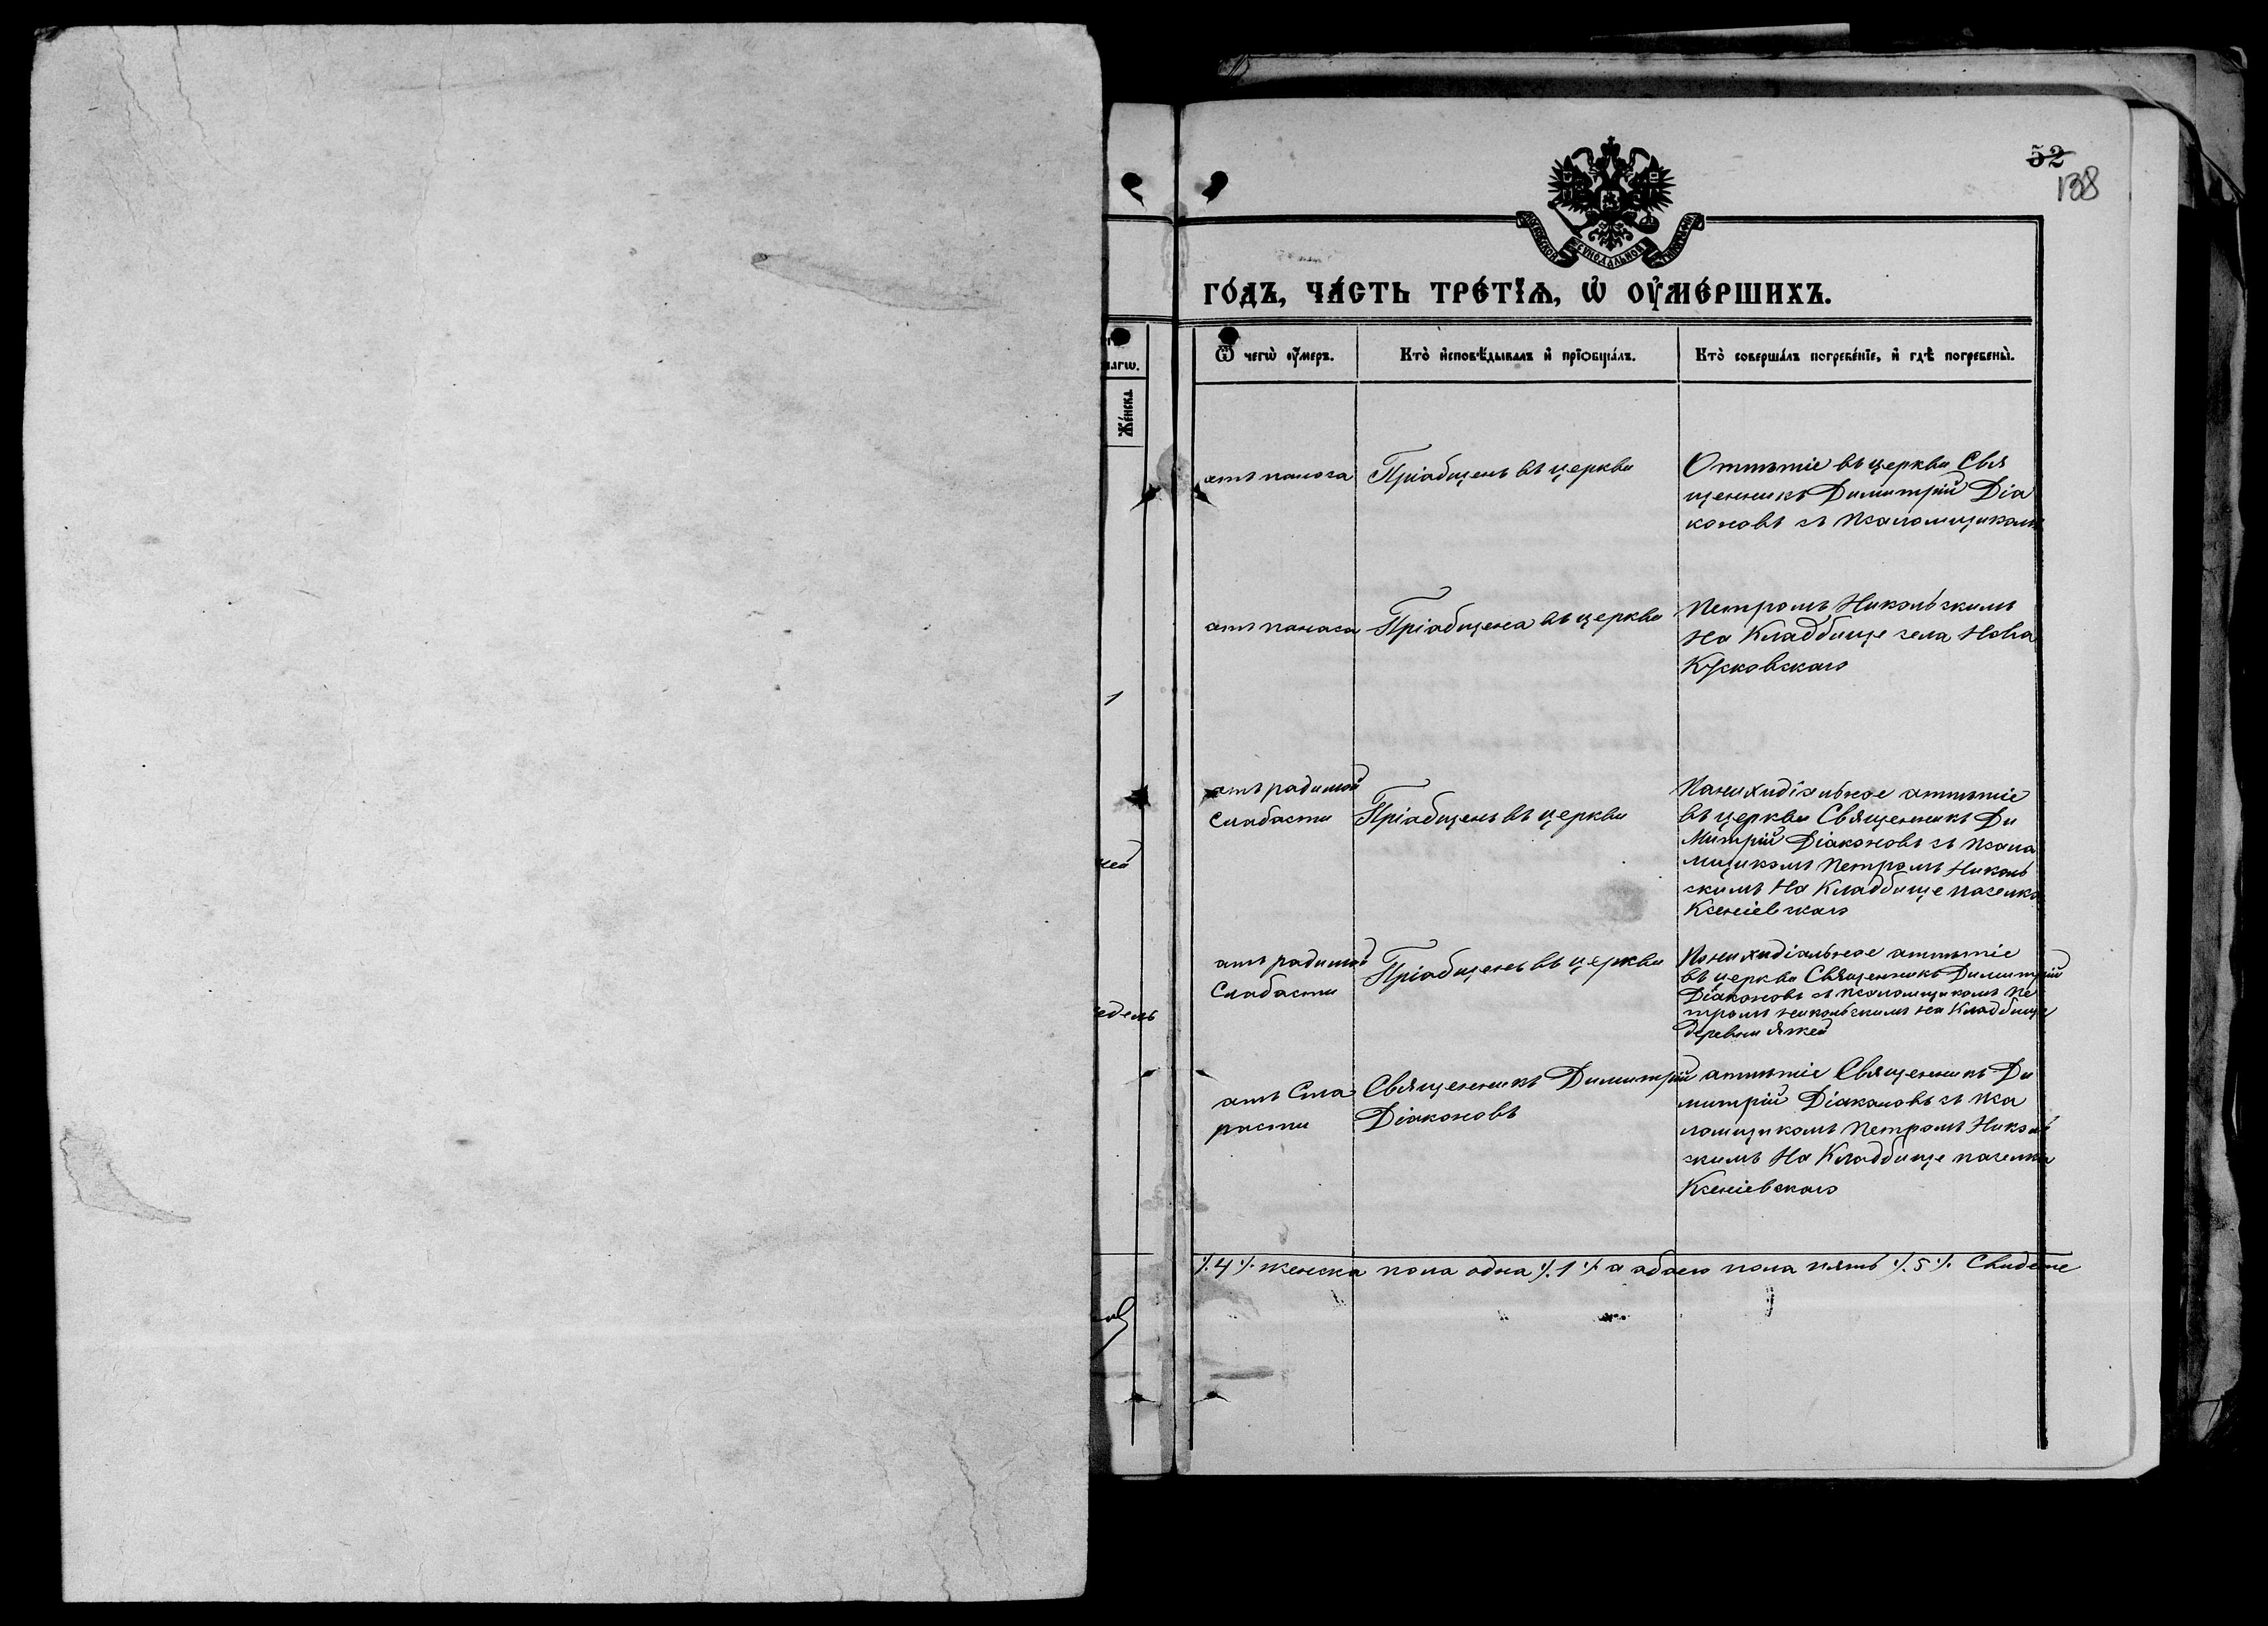 52
138
МОСКОВСКОЙ СΥНОДАЛЬНОЙ ТИПОГРАФІИ
ГО́ДЪ, ЧА́СТЬ ТРЕ́ТІѦ, Ѡ҆ ОУ҆МЕ́РШИХЪ.
Ѿ чегѡ̀ оу҆́меръ.
Кто̀ и҆сповѣ́дывалъ и҆ прїѡбща́лъ.
Кто̀ соверша́лъ погребе́нїе, и҆ гдѣ̀ погребены̀.
Же́нска
1
атъ паноса
Пріабщенъ въ церкви
Отпѣтіе въ церкви Свя
щенникъ Димитрій Діа
коновъ съ псаломщикомъ
атъ панаса
Пріабщена въ церкви
Петромъ Никольскимъ
на Кладбище села Нова
Кусковскаго
атъ радимой
Слабасти
Пріабщенъ въ церкви
Панихидіальное атпѣтіе
въ церкви Священникъ Ди
Митрій Діаконовъ съ псала
мщикомъ Петромъ Николь
скимъ на Кладбище паселка
Ксеніевскаго
атъ радимой
Слабасти
Пріабщенъ въ церкви
Панихидіальное атпѣтіе
въ церкви Священникъ Димитрій
Діаконовъ съ псаломщикомъ Пе
тромъ Никольскимъ на Кладбище
деревни
едель
атъ Ста
расти
Священникъ Димитрій
Діаконовъ
атпѣтіе Священникъ Ди
митрій Діаконовъ съ пса
ломщикомъ Петромъ Николь
скимъ на Кладбище паселка
Ксеніевскаго
⁒ 4 ⁒ женска пола одна ⁒ 1 ⁒ а абоего пола пять ⁒ 5 ⁒ Свидете